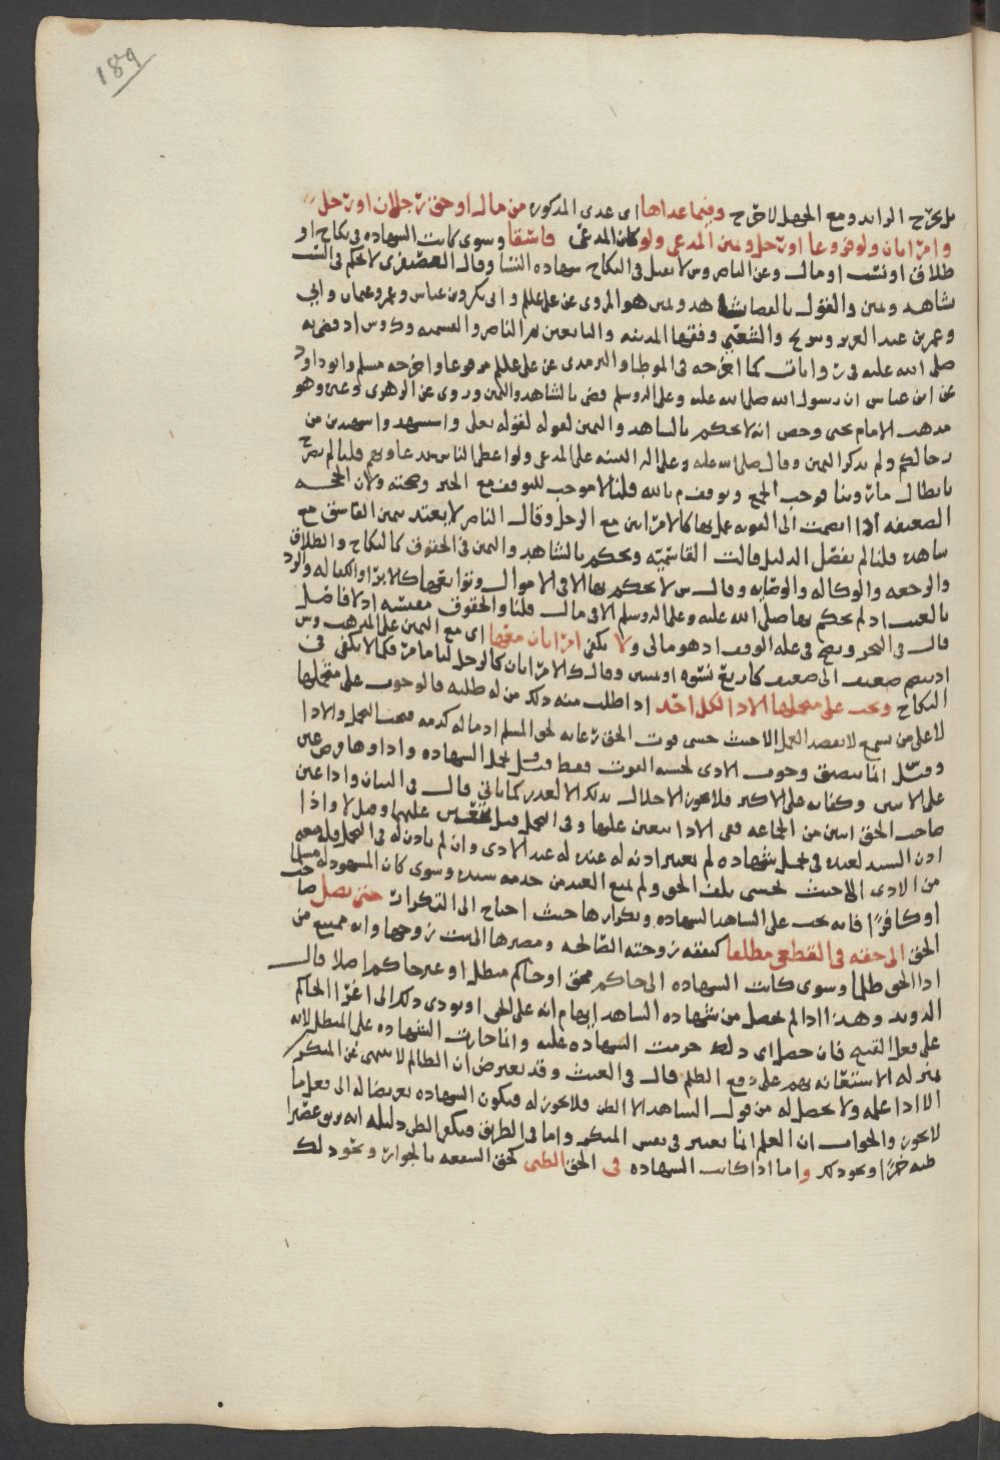 189
بل يجرح الزايد ومع الجهل لا جرح وفيما عداها اى عدى المذكور من مال او حق رجلان او رجل
وامراتان ولو فروعا او رجل ويمين المدعى ولو كان المدعى فاسقا وسوى كانت الشهاده فى نكاح او
طلاق او نسب او مال وعن الناصر وش لا تقبل فى النكاح شهاده النسا وقال لا يحكم فى النسب
بشاهد ويمين والقول بالقضا بشاهد ويمين هو المروى عن على علىلم وابى بكر وبن عباس وعمر وعثمان وابي
وعمر بن عبد العزيز وشريح والشعبي وفقها المدينه والتابعين ثم الناصر والقسميه وك وش اذ قضى به
صلى الله عليه فى روايات كما اخرجه فى الموطا والترمدى عن على علىلم مرفوعا واخرجه مسلم وابو داود
عن ابن عباس ان رسول الله صلى الله عليه وعلى اله وسلم قضى بالشاهد واليمين وروى عن الزهرى وهو
مدهب الامام يحيى وحص انه لا يحكم بالشاهد واليمين لقوله تعلى واستشهدوا شهيدين من
رجالكم ولم يذكر اليمين وقال صلى الله عليه وعلى اله البينه على المدعى ولو اعطى الناس بدعاويهم قلنا لم يصرح
بابطال ما روينا فوجب الجمع وتوقف م بالله قلنا لا موجب للتوقف مع الخبر وصحته ولان الحجه
الضعيفه اذا انضمت الى القويه عمل بها كالامراتين مع الرجل وقال الناصر لا يعتد بيمين الفاسق مع
شاهده قلنا لم يفصل الدليل قالت القاسميه ويحكم بالشاهد واليمين فى الحقوق كالنكاح والطلاق
والرجعه والوكاله والوصايه وقال ش لا يحكم بها الا فى الاموال وتوابعها كالابرا والكفاله والرد
بالعيب اذ لم يحكم بها صلى الله عليه وعلى اله وسلم الا فى مال قلنا والحقوق مقيسه اذ لا فاصل
قال فى البحر ويصح فى غله الوقف اذ هو مالى ولا يكفى امراتان معها اى مع اليمين على المذهب وش
اذ يضم ضعيف الى ضعيف كاربع نسوه او يمينين وقال ك الامراتان كالرجل لنا ما مر فكما لا يكفى فى
النكاح ويجب على متحملها الادا لكل احد اذا طلب منه ذلك من له طلبه فالوجوب على متحملها
لا على من سمع لا بقصد التحمل الا حيث خشى فوت الحق رعايه لحق المسلم اذ ماله كدمه فيجب التحمل والادا
وقيل انما يضيق وجوب الادى لخشيه الفوت فقط وقيل تحمل الشهاده واداوها فرض عين
على الاثنين وكفايه على الاكثر فلا يجوز الاخلال بذلك الا لعذر كما ياتى قال فى البيان واذا عين
صاحب الحق اثنين من الجماعه ففى الادا يتعين عليهما وفى التحمل قيل يتعين عليهما وقيل لا واذا
اذن السيد لعبده فى تحمل شهاده لم يعتبر اذنه له عند الادى وان لم ياذن له فى التحمل فله منعه
من الادى الا حيث يخشى تلف الحق ولم يمنع العبد من خدمه سيده وسوى كان المشهود له مسلما
او كافرًا فانه يجب على الشاهد الشهاده وتكرارها حيث احتاج الى التكرار حتى يصل صاحب
الحق الى حقه فى القطعى مطلقا كنفقه زوجته الصالحه ومصيرها الى بيت زوجها وانه ممتنع من
ادا الحق ظلما وسوى كانت الشهاده الى حاكم محق او حاكم مبطل او غير حاكم اصلا قال
الدوىد وهذا اذا لم يحصل من شهاده الشاهد ايهام انه على الحق او يودى ذلك الى اغرا الحاكم
على فعل القبيح فان حصل اى ذلك حرمت الشهاده عليه وانما جازت الشهاده على المبطل لانه
بمنزله الاستعانه بهم على دفع الظلم قال فى الغيث وقد يعترض ان الظالم لا ينتهى عن المنكر
الا اذا علمه ولا يحصل له من قول الشاهد الا الظن فلا يجوز له فيكون الشهاده تعريضا له الى فعل ما
لا يجوز والجواب ان العلم انما يعتبر فى نفس المنكر واما فى الطريق فيكفى الظن دليله انه يريق عصيرا
ظنه خمرًا ونحو ذلك واما اذا كانت الشهاده فى الحق الظنى كحق الشفعه بالجوار ونحو ذلك